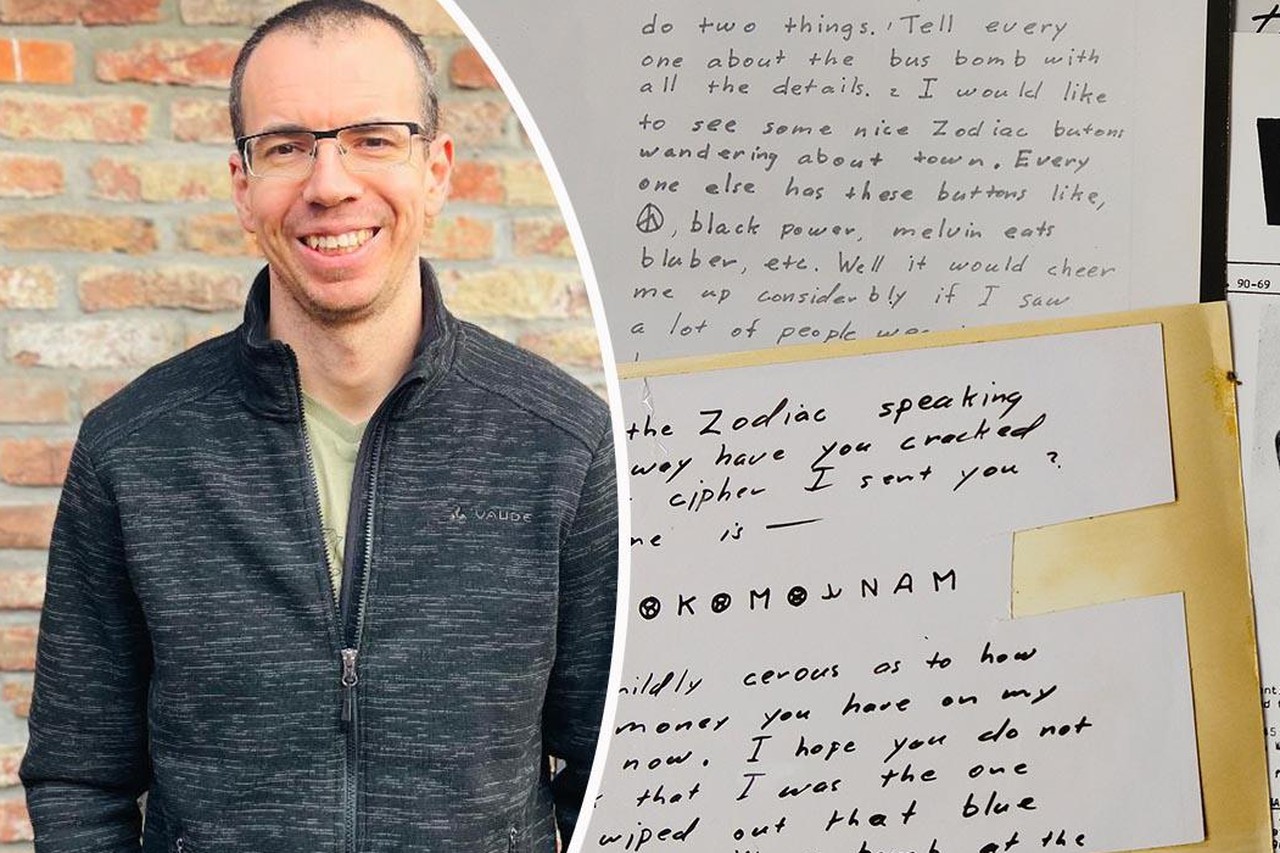 VAUDE
do two things. 1 Tell every
one about the bus bomb with
all the details. 2 I would like
to see some nice Zodiac butons
wandering about town. Every
one else has these buttons like,
, black power, melvin eats
bluber, etc. Well it would cheer
me up considerbly if I saw
a lot of people
the Zodiac speaking
way have you cracked
cipher I sent you ?
is —
K M N A M
mildly cerous as to how
money you have on my
now. I hope you do not
that I was the one
wiped out that blue
bomb at the
90-69